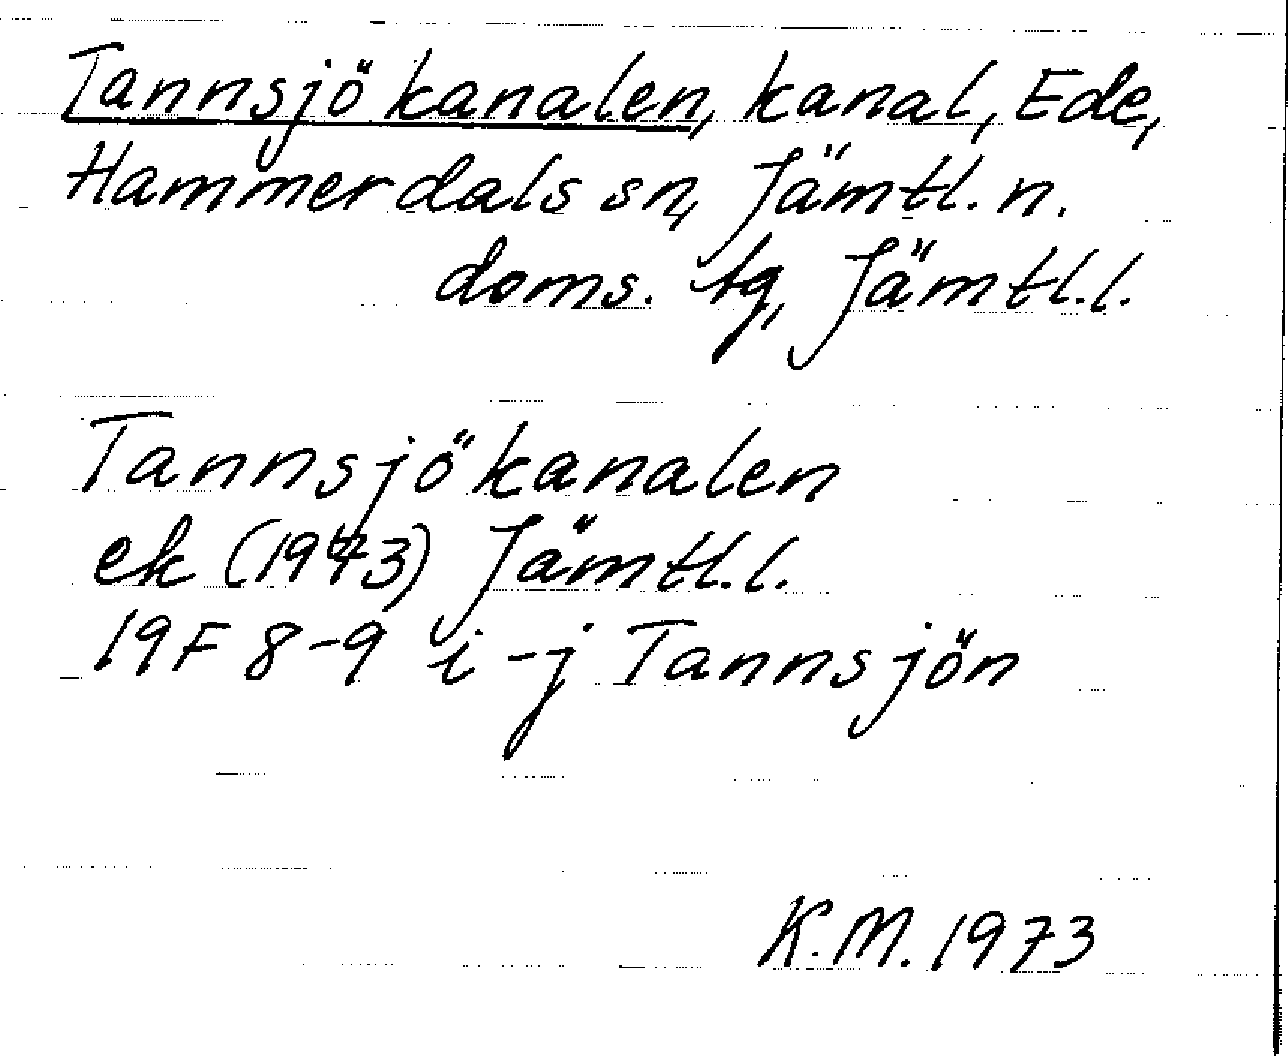 Tannsjökanalen, kanal, Ede,
Hammerdals sn, Jämtl. n.
doms. tg, Jämtl. l.
Tannsjökanalen
ek (1973) Jämtl. l.
19F 8-9 i-j Tannsjön
K.M. 1973